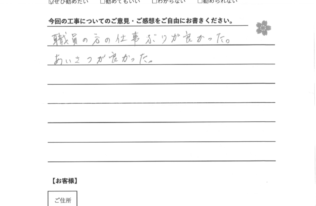 ☑ぜひ勧めたい　□勧めてもいい　□わからない　□勧められない
今回の工事についてのご意見・ご感想をご自由にお書きください。
職員の方の仕事ぶりが良かった。
あいさつが良かった。
【お客様】
ご住所